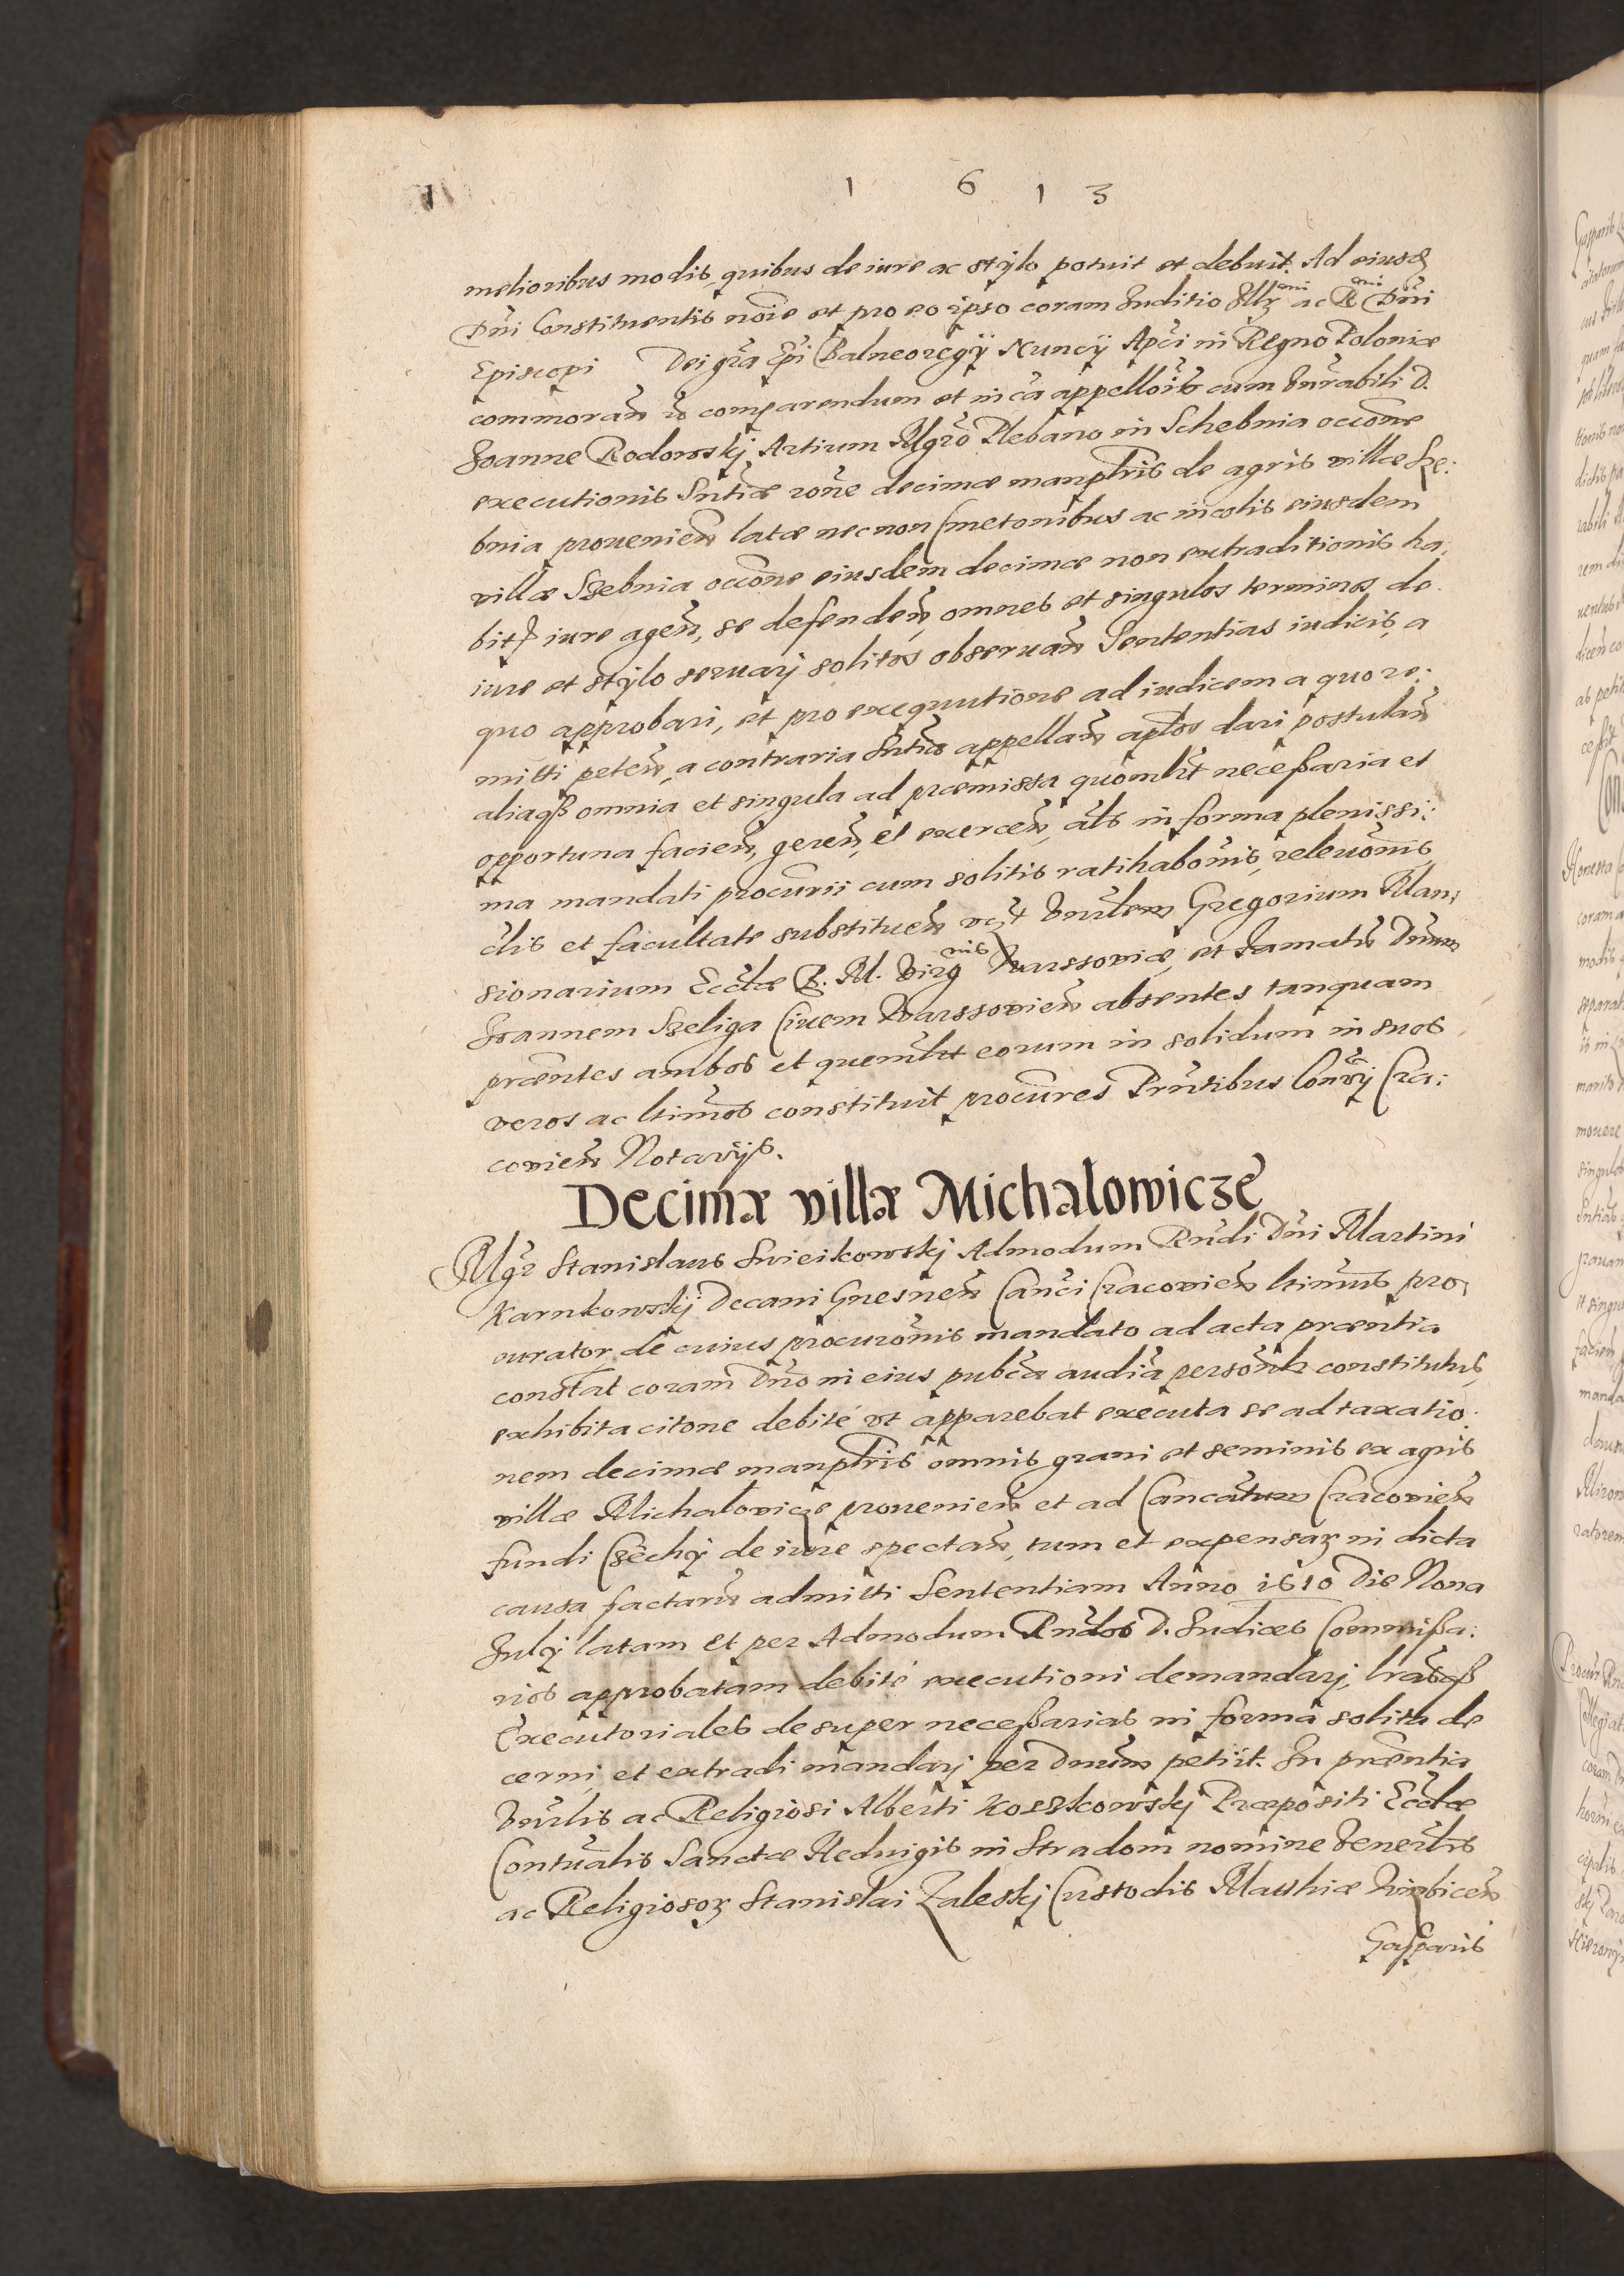 1 6 1 3
melioribus modis, quibus de iure ac stÿlo potuit et debuit. Ad eiusd
Dni Constituentis noie et pro eo ipso coram Juditio Illr mi ac R mi Dni
Episcopi Dei gra Epi Balneoregÿ Nuncÿ Apci in Regno Poloniæ
commoran comparendum et in ca appellois cum Vnrabili D.
Joanne Rodowskj Artium Mgro Plebano in Schebnia occone
executionis Sntiæ rone decimæ manplris de agris villæ Sze:
bnia prouenien latæ nec non Cmetonibus ac incolis eiusdem
villæ Szebnia occone eiusdem decimæ non extraditionis ha,
bit iure agen, se defenden, omnes et singulos terminos de
iure et stÿlo seruarj solitos obseruan Sententias iudicis, a
quo approbari, et pro exequutione ad iudicem a quo re:
mitti peten, a contraria Sntia appellan aplos dari postulan
aliaqß omnia et singula ad præmissa quomlit neceßaria et
opportuna facien, geren, et exercen, als in forma plenissi:
ma mandati procurii cum solitis ratihabonis, releuonis,
clis et facultate substituen Vnrlem Gregorium Man,
sionarium Ecclæ B. M. Virg nis Varssoviæ, et Famatu Dnum
Joannem Szeliga Ciuem Varssovien absentes tanquam
præntes ambos et quemlit eorum in solidum in suos
veros ac ltimos constituit procures Prntibus Conrÿ Cra:
covien Notarÿß.
Decimæ villæ Michalowicze
Mgr Stanislaus Swieikowskj Admodum Rndi Dni Martini
Karnkowskj Decani Gnesnen Canci Cracovien ltimus pro,
curator de cuius procuronis mandato ad acta præntia
constat coram Dno in eius pubca audia personlr constitutus,
exhibita citone debité vt apparebat executa se ad taxatio.
nem decimæ manplris omnis grani et seminis ex agris
villæ Michalovicze prouenien et ad Cancatum Cracovien
fundi Czechÿ de iure spectan, tum et expensaz in dicta
causa factaru admitti Sententiam Anno 1610 Die Nona
Julÿ latam et per Admodum Rndos D. Judices Commißa:
rios approbatam debité executioni demandarj, lrasqß
Executoriales desuper neceßarias in forma solita de
cerni, et extradi mandarj per Dnum petiit. In præntia
Vnrlis ac Religiosi Alberti Koszkowskj Præpositi Ecclæ
Contualis Sanctæ Heduigis in Stradom nomine Venerlis
ac Religiosoz Stanislai Zaleskj Custodis Matthiæ
Gasparis